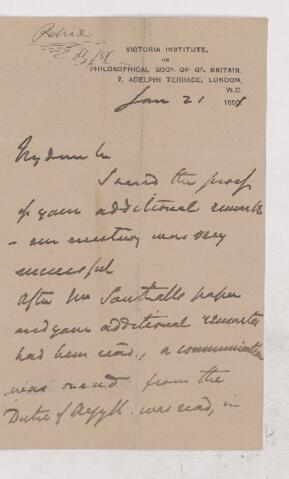 VICTORIA INSTITUTE,
OR
PHILOSOPHICAL SOCY. OF GT. BRITAIN.
7, ADELPHI TERRACE, LONDON,
W.C.
Jan 21 189
My dear Sir
I send the proof
of your additional remarks
- our meeting was very
successful
After Mr Southalls paper
and your additional remarks
had been read, a communication
was read from the
Duke of Argyll was read, in